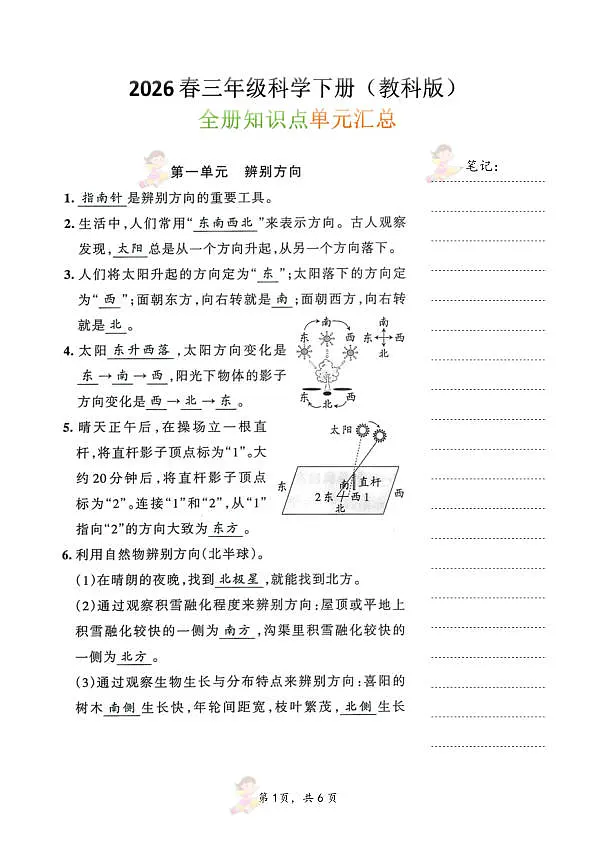 2026 春三年级科学下册（教科版）
全册知识点单元汇总
第一单元 辨别方向
1. 指南针是辨别方向的重要工具。
2. 生活中,人们常用“东南西北”来表示方向。古人观察
发现,太阳总是从一个方向升起,从另一个方向落下。
3. 人们将太阳升起的方向定为“东”;太阳落下的方向定
为“西”;面朝东方,向右转就是南;面朝西方,向右转
就是北。
4. 太阳东升西落,太阳方向变化是
东→南→西,阳光下物体的影子
方向变化是西→北→东。
南
东 西
东 西
北
南
东 西
北
5. 晴天正午后,在操场立一根直
杆,将直杆影子顶点标为“1”。大
约20分钟后,将直杆影子顶点
标为“2”。连接“1”和“2”,从“1”
指向“2”的方向大致为东方。
太阳
东
南 直杆
2 东 西 1
北
西
6. 利用自然物辨别方向(北半球)。
(1)在晴朗的夜晚,找到北极星,就能找到北方。
(2)通过观察积雪融化程度来辨别方向:屋顶或平地上
积雪融化较快的一侧为南方,沟渠里积雪融化较快的
一侧为北方。
(3)通过观察生物生长与分布特点来辨别方向:喜阳的
树木南侧生长快,年轮间距宽,枝叶繁茂,北侧生长
笔记：
第 1 页，共 6 页